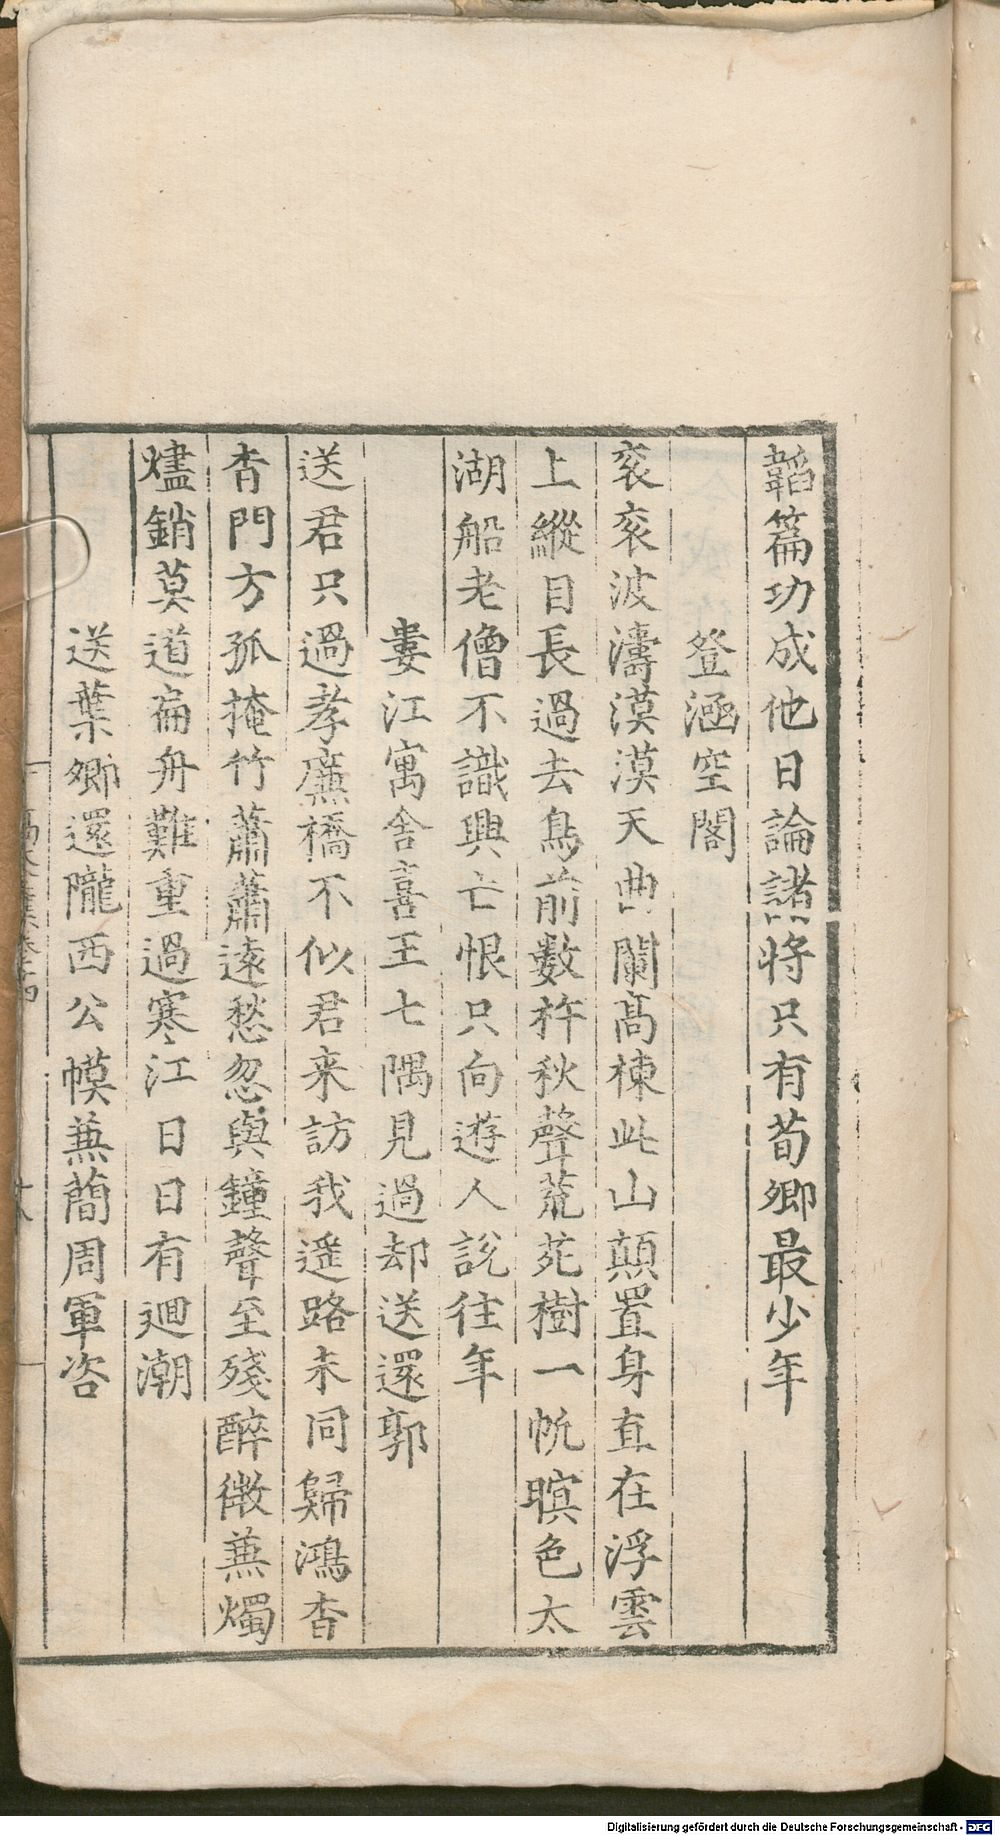 韜篇功成他日論諸將只有荀卿最少年
登涵空閣
衮衮波濤漠漠天曲闌髙棟此山顛置身直在浮雲
上縱目長過去鳥前數杵秋聲荒苑樹一帆暝色太
湖船老僧不識興亡恨只向遊人說往年
婁江寓舍喜王七隅見過却送還郭
送君只過孝廉橋不似君来訪我遥路未同歸鴻杳
杳門方孤掩竹蕭蕭遠愁忽與鐘聲至殘醉微兼燭
燼銷莫道扁舟難重過寒江日日有迴潮
送葉卿還隴西公幙兼蕳周軍咨
Digitalisierung gefördert durch die Deutsche Forschungsgemeinschaft - DFG